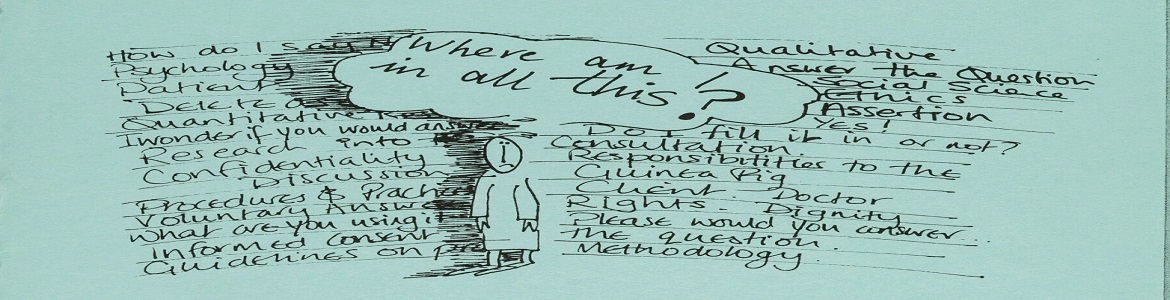 Where am
in all this?
How do I say
Psychology
Patient
Delete a
Quantitative
I wonder if you would
Research into
Confidentiality
Discussion
Procedures &
Voluntary
What are you using it
Informed consent
Guidelines on
Qualitative
Answer the Question
Social Science
Ethics
Assertion
Yes!
Do I fill it in or not?
Consultation.
Responsibilities to the
Guinea Pig
Client. Doctor
Rights. Dignity
Please would you answer...
the question.
Methodology.